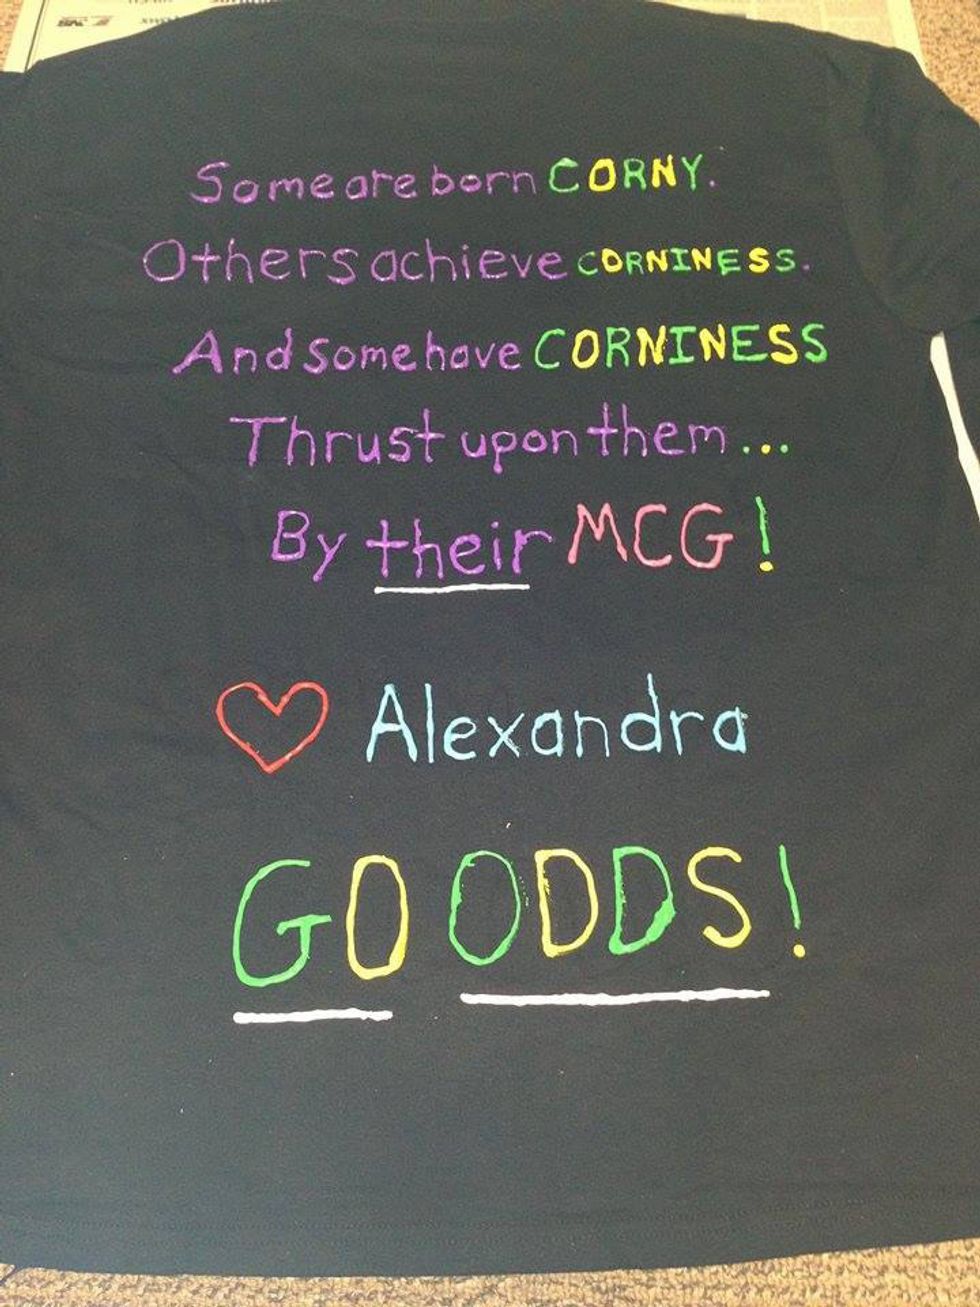 Some are born CORNY.
Others achieve CORNINESS.
And some have CORNINESS
Thrust upon them...
By their MCG!
♡ Alexandra
GO ODDS!